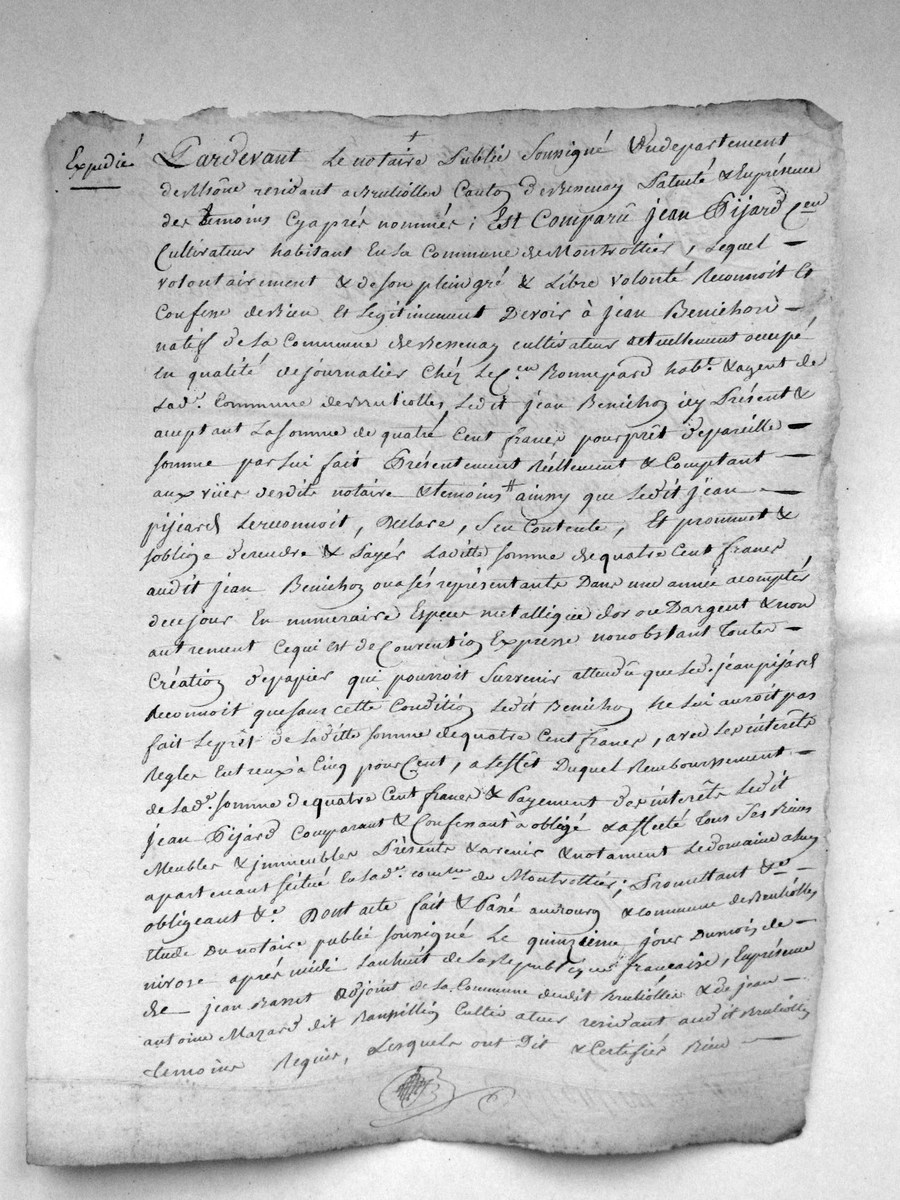 Expedié
Pardevant Le notaire Public Soussigné Du departement
du Rhône residant a Brulliolles Canton de Bessenay Patenté & En présence
des temoins Cyaprés nommés; Est Comparû jean Pijard Cen
Cultivateur habitant En La Commune de Montrottier, Lequel
volontairement & de son plein gré & Libre volonté Reconnoit Et
Confesse de Bien Et Legitimement Devoir à jean Benichon
natif de La Commune de Bessenay cultivateur actuellement occupé
En qualité de journalier Chéz Le Cen Bonnepard habt. & agent de
Lade. Commune de Brulliolles, Ledit jean Benichon icy Présent &
aceptant La somme de quatre Cent francs pour prêt de pareille
somme par Lui fait Présentement Réellement & Comptant
aux vües desdits notaire & temoins ainsy que Ledit jean
pijard Le reconnoit, Declare, s'en Contente, Et prommet &
soblige de rendre & Payér Laditte somme de quatre Cent francs
audit jean Benichon ou a sés représentants Dans une année a comptér
de ce jour En numeraire Espece metallique d'or ou D'argent & non
autrement Ce qui Est de Convention Expresse nonobstant Toutes
Création de papier qui pourroit Survenir attendû que Led. jean pijard
Reconnoit que sans cette Condition Ledit Benichon ne Lui auroit pas
fait Le prêt de Laditte somme de quatre Cent francs, avec Les intérêts
Regles Entreux à Cinq pour Cent, a Leffêt Duquel Remboursement
de Lade. somme de quatre Cent francs & Payement des intérêts Ledit
jean Pijard Comparant & Confessant à obligé & affecté Tous Ses Biens
Meubles & jmmeubles Présents & avenir & notament Le domaine a Luy
apartenant scitué En Lade. comune de Montrottier; Promettant &c
obligeant &c Dont acte fait & Passé au Bourg & commune de Brulliolles
Etude Du notaire public soussigné Le quinzieme jour Du mois de
nivose aprés midi Lan huit de La Republique française, En présence
de jean Basset adjoint de La Commune dudit Brulliolles & de jean
antoine Mazard dit Cultivateur residant audit Brulliolles
temoins Requis, Lesquels ont Dit & Certifiér Bien